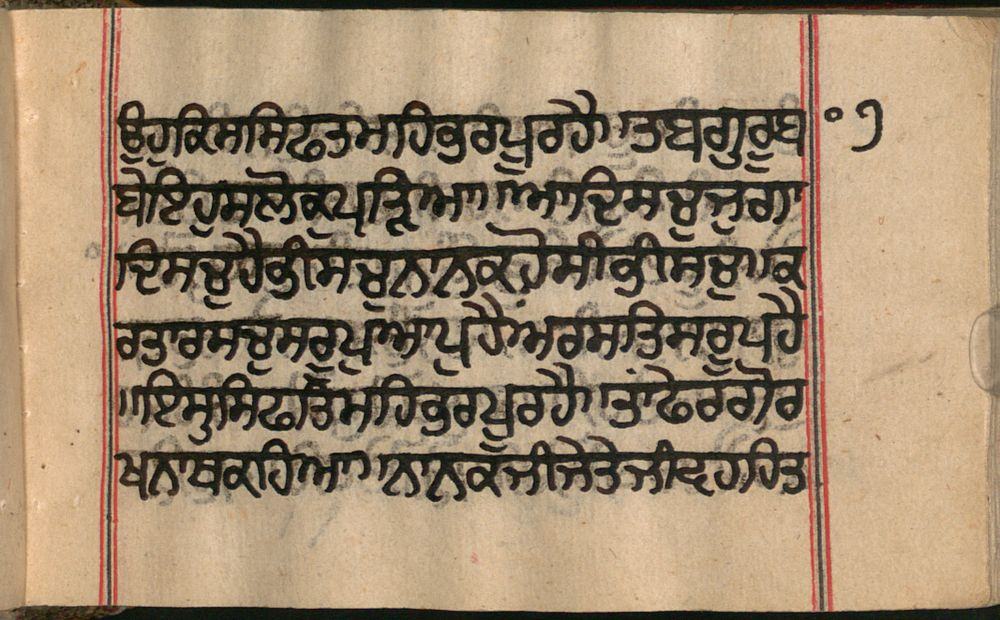 ਉਹੁਕਿਸਸਿਫਤਮਹਿਭਰਪੂਰਹੈ॥ਤਬਗੁਰੂਬ ੦੧
ਬੇਇਹੁਸਲੋਕੁਪੜ੍ਹਿਆ॥ਆਦਿਸਚੁਜੁਗਾ
ਦਿਸਚੁਹੈਭੀਸਚੁਨਾਨਕਹੋਸੀਭੀਸਚੁ॥ਕ
ਰਤਾਰਸਚੁਸਰੂਪੁਆਪੁਹੈ॥ਅਰਸਤਿਸਰੂਪਹੈ
॥ਇਸੁਸਿਫਤਿਮਹਿਭਰਪੂਰਹੈ॥ਤਾਂਫੇਰਗੋਰ
ਖਨਾਥਕਹਿਆ॥ਨਾਨਕਜੀਜੇਤੇਜੀਵਹਹਿਤ